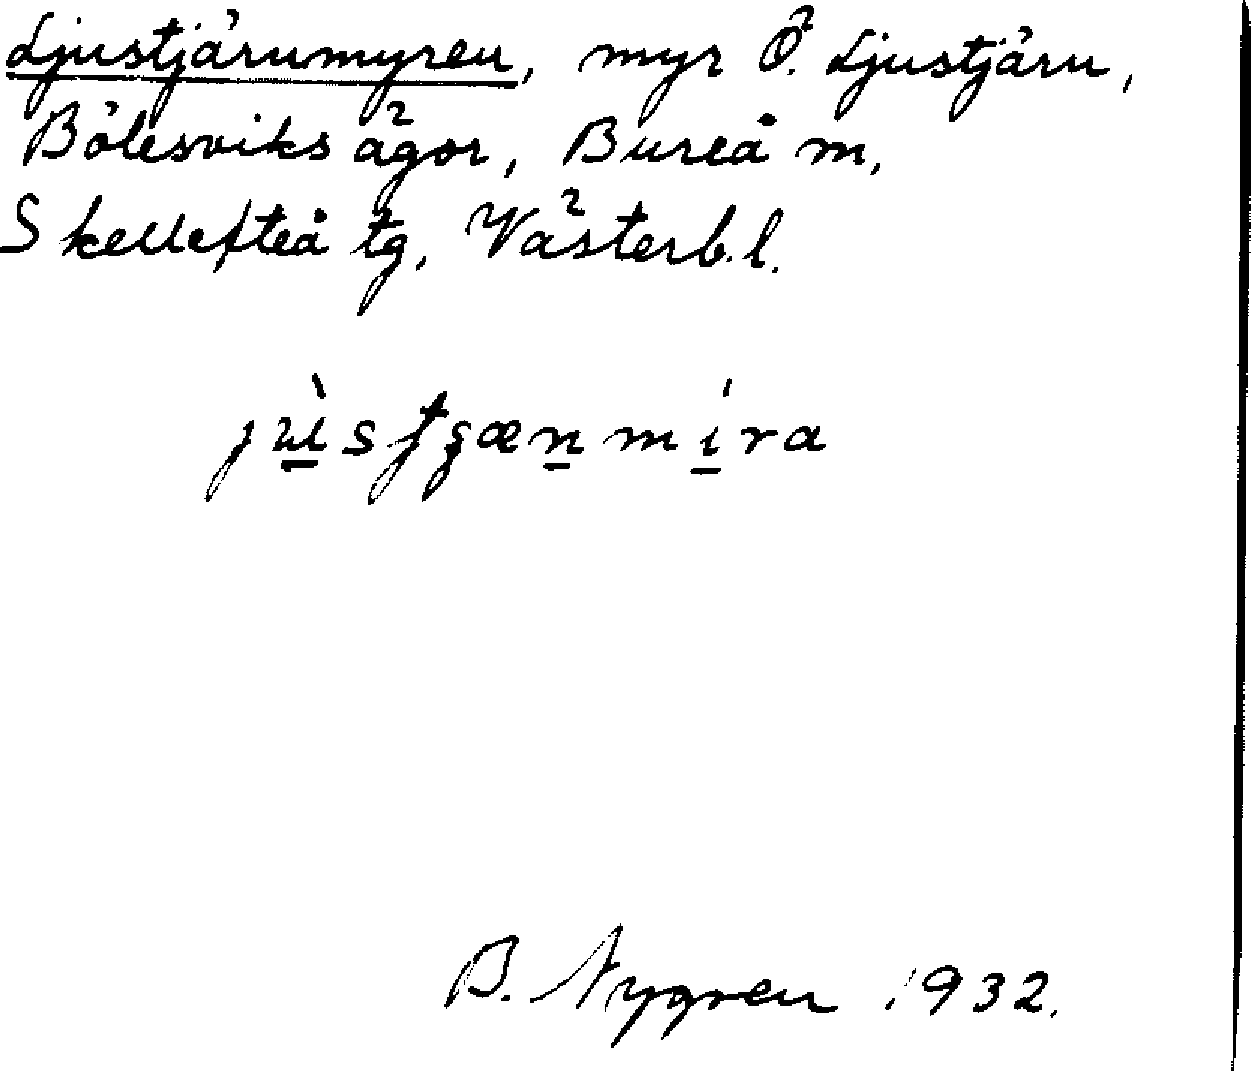 Ljustjärnmyren, myr Ö. Ljustjärn,
Bölesviks ägor, Bureå m,
Skellefteå tg, Västerb. l.
B. Nygren 1932.